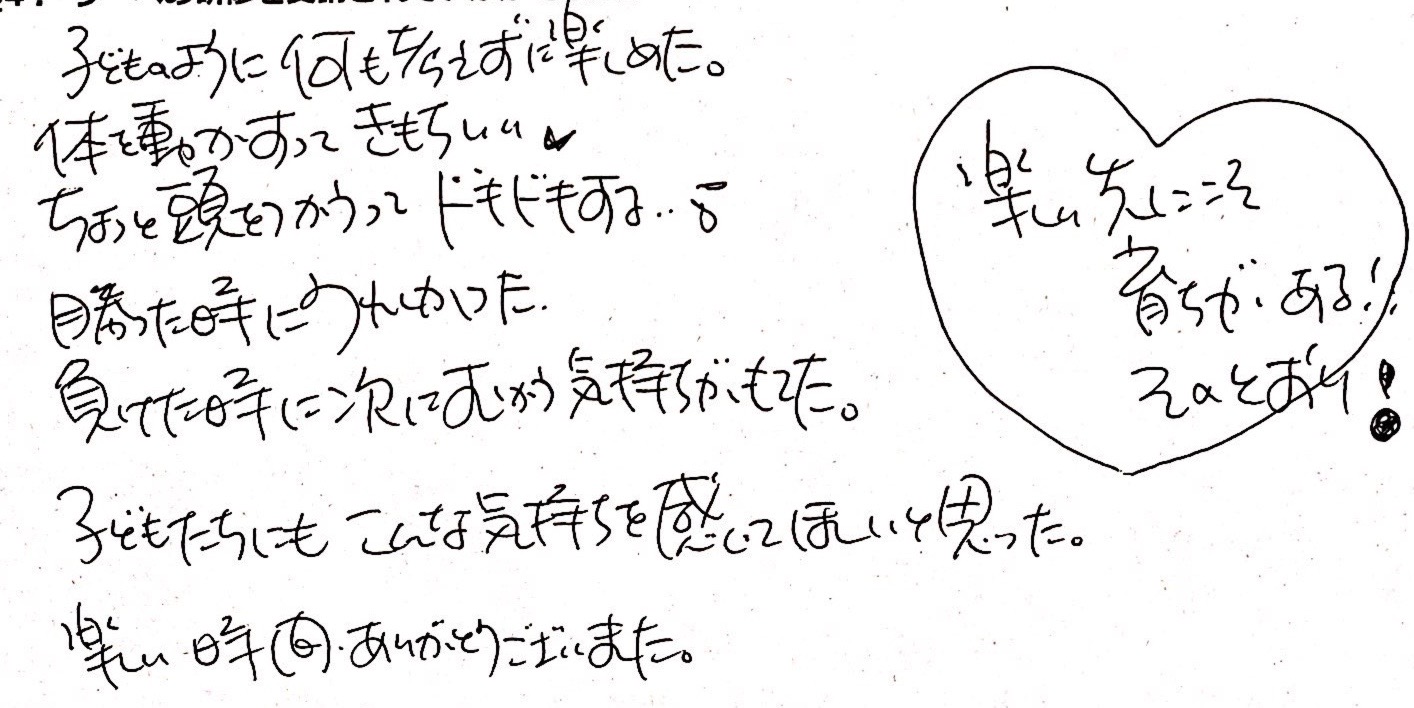 子どものように何も考えずに楽しめた。
体を動かすって きもちいい
ちょっと頭をつかうって ドキドキする‥
勝った時にうれしかった.
負けた時に次にむかう気持ちがもてた。
子どもたちにも こんな気持ちを感じてほしいと思った。
楽しい時間.ありがとうございました。
楽しい先にこそ
育ちがある!!
そのとおり!